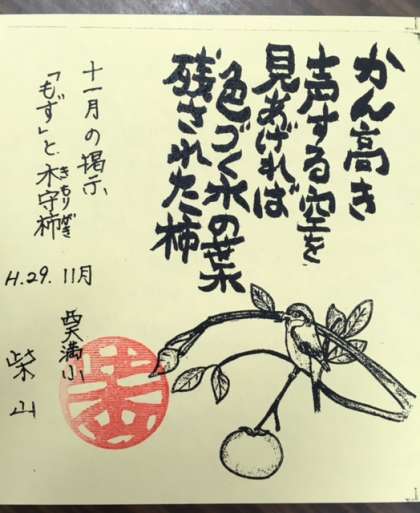 かん高き
声する空を
見あげれば
色づく木の葉
残された柿
十一月の掲示
「もず」と木守柿
きもりがき
H.29.11月
西天満小
柴山